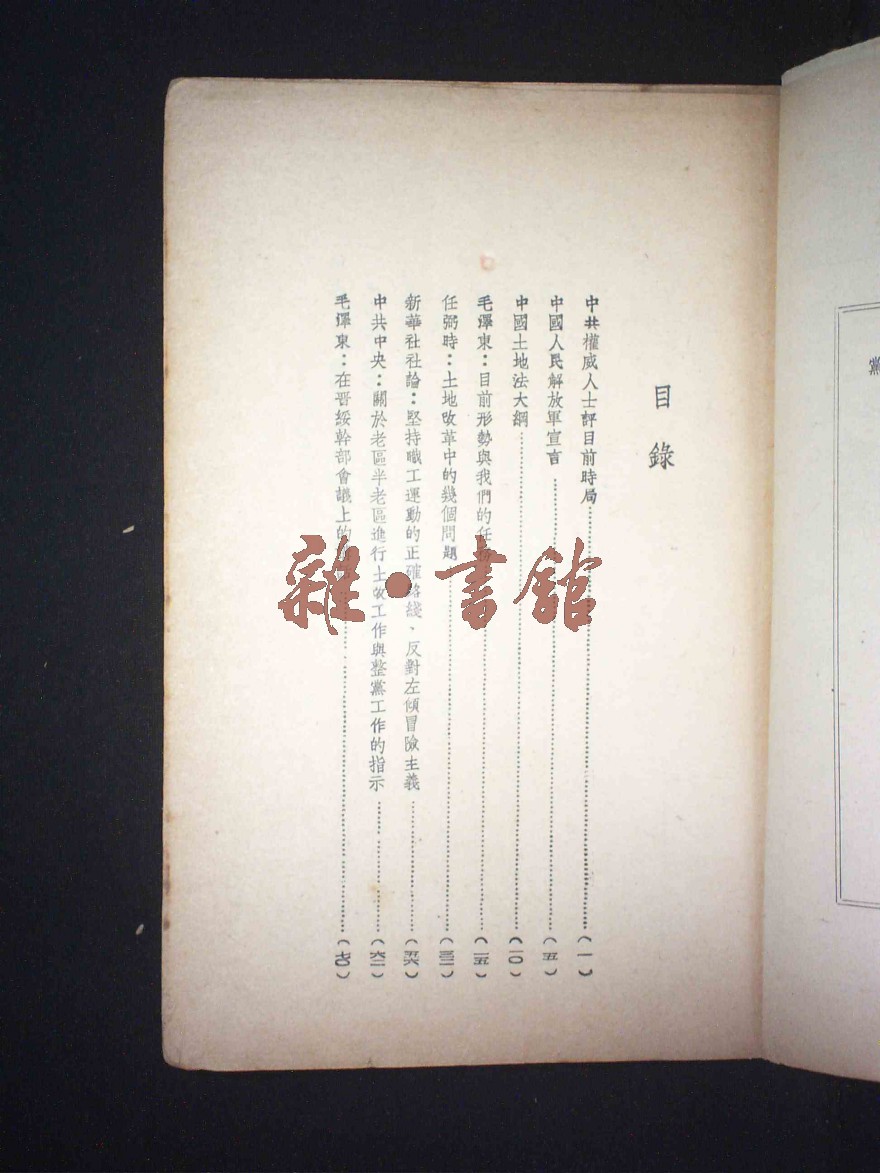 目錄
中共權威人士評目前時局(一)
中國人民解放軍宣言(五)
中國土地法大綱(一〇)
毛澤東：目前形勢與我們的任(一五)
任弼時：土地改革中的幾個問題(三二)
新華社社論：堅持職工運動的正確路綫、反對左傾冒險主義(五六)
中共中央：關於老區半老區進行土改工作與整黨工作的指示(六二)
毛澤東：在晋綏幹部會議上的(七〇)
雜•書館
黨